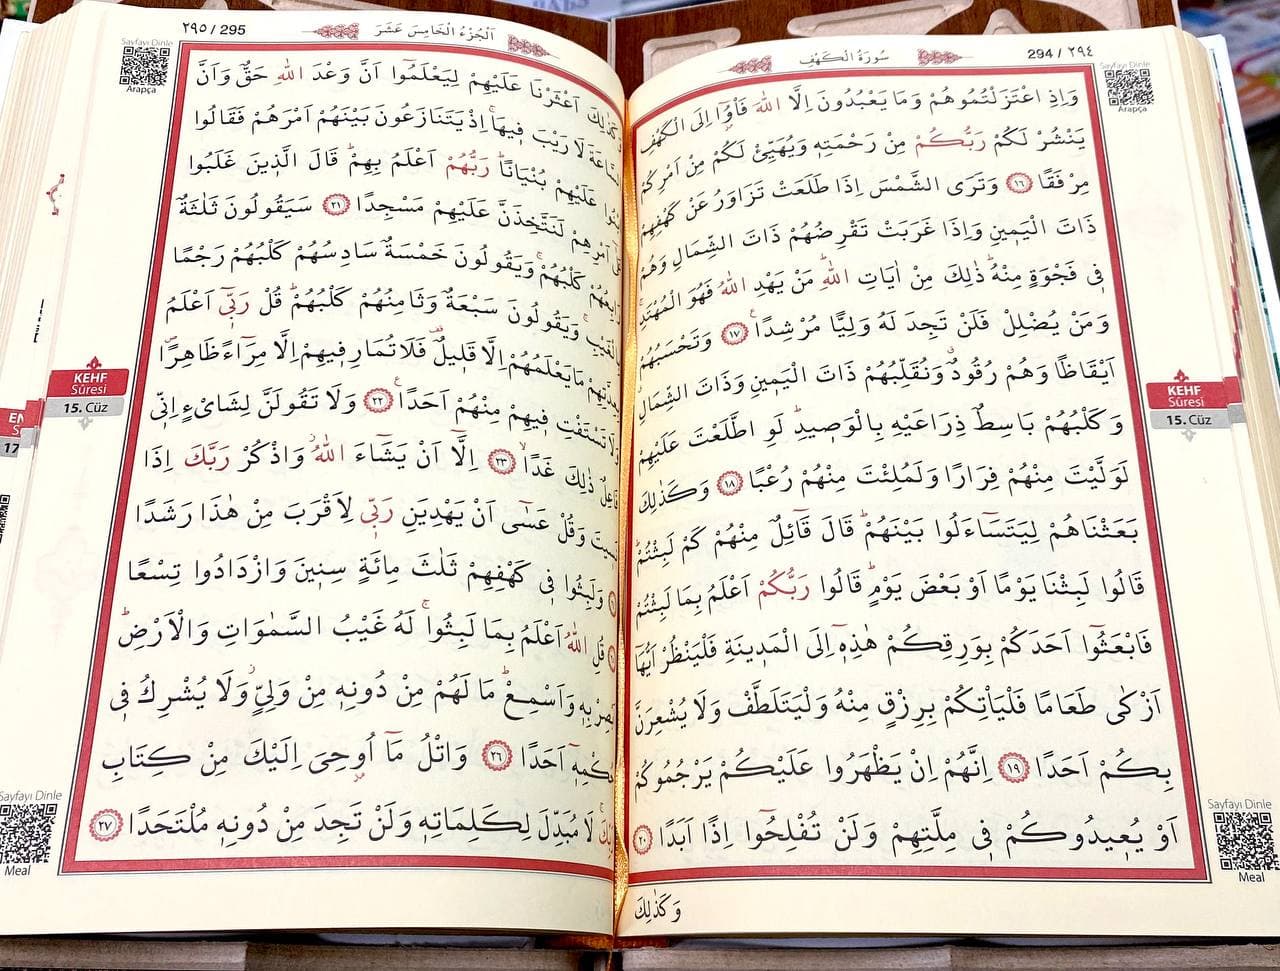 294 / ٢٩٤
سُورَةُ الْكَهْفِ
Sayfayı Dinle
Arapça
وَاِذِ اعْتَزَلْتُمُوهُمْ وَمَا يَعْبُدُونَ اِلَّا اللّٰهَ فَأْوُٓا اِلَى الْكَهْفِ
يَنْشُرْ لَكُمْ رَبُّكُمْ مِنْ رَحْمَتِه۪ وَيُهَيِّئْ لَكُمْ مِنْ اَمْرِكُمْ
مِرْفَقًا ١٦ وَتَرَى الشَّمْسَ اِذَا طَلَعَتْ تَزَاوَرُ عَنْ كَهْفِهِمْ
ذَاتَ الْيَم۪ينِ وَاِذَا غَرَبَتْ تَقْرِضُهُمْ ذَاتَ الشِّمَالِ وَهُمْ
ف۪ي فَجْوَةٍ مِنْهُۜ ذٰلِكَ مِنْ اٰيَاتِ اللّٰهِۜ مَنْ يَهْدِ اللّٰهُ فَهُوَ الْمُهْتَدِۚ
وَمَنْ يُضْلِلْ فَلَنْ تَجِدَ لَهُ وَلِيًّا مُرْشِدًا۟ ١٧ وَتَحْسَبُهُمْ
اَيْقَاظًا وَهُمْ رُقُودٌۗ وَنُقَلِّبُهُمْ ذَاتَ الْيَم۪ينِ وَذَاتَ الشِّمَالِ
وَكَلْبُهُمْ بَاسِطٌ ذِرَاعَيْهِ بِالْوَص۪يدِۜ لَوِ اطَّلَعْتَ عَلَيْهِمْ
لَوَلَّيْتَ مِنْهُمْ فِرَارًا وَلَمُلِئْتَ مِنْهُمْ رُعْبًا ١٨ وَكَذٰلِكَ
بَعَثْنَاهُمْ لِيَتَسَٓاءَلُوا بَيْنَهُمْۜ قَالَ قَٓائِلٌ مِنْهُمْ كَمْ لَبِثْتُمْۜ
قَالُوا لَبِثْنَا يَوْمًا اَوْ بَعْضَ يَوْمٍۜ قَالُوا رَبُّكُمْ اَعْلَمُ بِمَا لَبِثْتُمْ
فَابْعَثُٓوا اَحَدَكُمْ بِوَرِقِكُمْ هٰذِه۪ٓ اِلَى الْمَد۪ينَةِ فَلْيَنْظُرْ اَيُّهَٓا
اَزْكٰى طَعَامًا فَلْيَأْتِكُمْ بِرِزْقٍ مِنْهُ وَلْيَتَلَطَّفْ وَلَا يُشْعِرَنَّ
بِكُمْ اَحَدًا ١٩ اِنَّهُمْ اِنْ يَظْهَرُوا عَلَيْكُمْ يَرْجُمُوكُمْ
اَوْ يُع۪يدُوكُمْ ف۪ي مِلَّتِهِمْ وَلَنْ تُفْلِحُٓوا اِذًا اَبَدًا ٢٠
وَكَذٰلِكَ
KEHF
Sûresi
15. Cüz
Sayfayı Dinle
Meal
٢٩٥ / 295
اَلْجُزْءُ الْخَامِسَ عَشَرَ
Sayfayı Dinle
Arapça
وَكَذٰلِكَ اَعْثَرْنَا عَلَيْهِمْ لِيَعْلَمُٓوا اَنَّ وَعْدَ اللّٰهِ حَقٌّ وَاَنَّ
السَّاعَةَ لَا رَيْبَ ف۪يهَاۚ اِذْ يَتَنَازَعُونَ بَيْنَهُمْ اَمْرَهُمْ فَقَالُوا
ابْنُوا عَلَيْهِمْ بُنْيَانًاۜ رَبُّهُمْ اَعْلَمُ بِهِمْۜ قَالَ الَّذ۪ينَ غَلَبُوا
عَلٰٓى اَمْرِهِمْ لَنَتَّخِذَنَّ عَلَيْهِمْ مَسْجِدًا ٢١ سَيَقُولُونَ ثَلٰثَةٌ
رَابِعُهُمْ كَلْبُهُمْۚ وَيَقُولُونَ خَمْسَةٌ سَادِسُهُمْ كَلْبُهُمْ رَجْمًا
بِالْغَيْبِۚ وَيَقُولُونَ سَبْعَةٌ وَثَامِنُهُمْ كَلْبُهُمْۜ قُلْ رَبّ۪ٓي اَعْلَمُ
بِعِدَّتِهِمْ مَا يَعْلَمُهُمْ اِلَّا قَل۪يلٌ۠ فَلَا تُمَارِ ف۪يهِمْ اِلَّا مِرَٓاءً ظَاهِرًاۖ
وَلَا تَسْتَفْتِ ف۪يهِمْ مِنْهُمْ اَحَدًا۟ ٢٢ وَلَا تَقُولَنَّ لِشَايْءٍ اِنّ۪ي
فَاعِلٌ ذٰلِكَ غَدًاۙ ٢٣ اِلَّٓا اَنْ يَشَٓاءَ اللّٰهُۘ وَاذْكُرْ رَبَّكَ اِذَا
نَس۪يتَ وَقُلْ عَسٰٓى اَنْ يَهْدِيَنِ رَبّ۪ي لِاَقْرَبَ مِنْ هٰذَا رَشَدًا
وَلَبِثُوا ف۪ي كَهْفِهِمْ ثَلٰثَ مِائَةٍ سِن۪ينَ وَازْدَادُوا تِسْعًا
قُلِ اللّٰهُ اَعْلَمُ بِمَا لَبِثُواۚ لَهُ غَيْبُ السَّمٰوَاتِ وَالْاَرْضِۜ
اَبْصِرْ بِه۪ وَاَسْمِعْۜ مَا لَهُمْ مِنْ دُونِه۪ مِنْ وَلِيٍّۘ وَلَا يُشْرِكُ ف۪ي
حُكْمِه۪ٓ اَحَدًا ٢٦ وَاتْلُ مَٓا اُو۫حِيَ اِلَيْكَ مِنْ كِتَابِ
رَبِّكَۚ لَا مُبَدِّلَ لِكَلِمَاتِه۪ وَلَنْ تَجِدَ مِنْ دُونِه۪ مُلْتَحَدًا ٢٧
KEHF
Sûresi
15. Cüz
Sayfayı Dinle
Meal
17